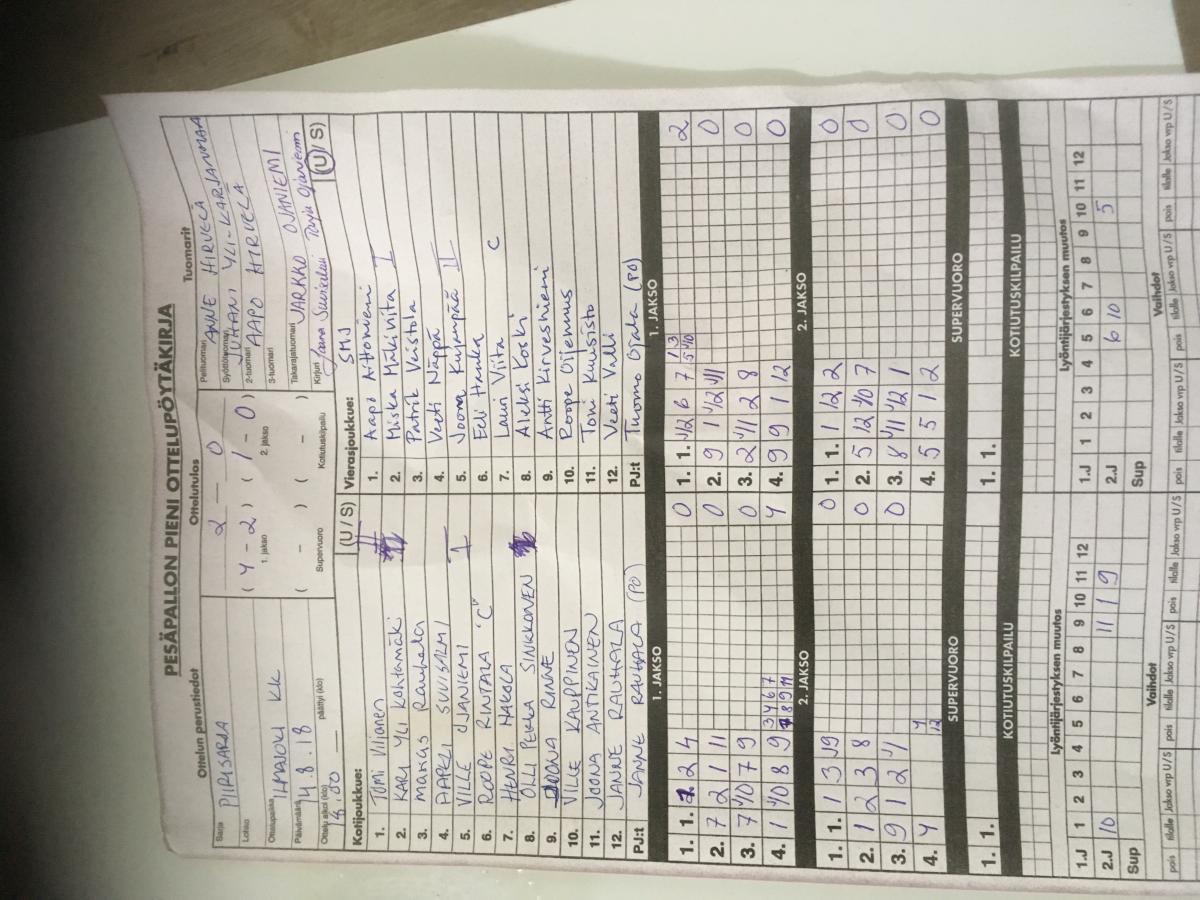 PESÄPALLON PIENI OTTELUPÖYTÄKIRJA
Ottelun perustiedot Ottelutulos Tuomarit
Sarja PIIRISARJA
Lohko
Ottelupaikka ILMAJOKI KK
Päivämäärä 14.8.18
Ottelu alkoi (klo) 18.00 päättyi (klo) —
2 — 0
( 4 - 2 ) ( 1 - 0 )
1. jakso 2. jakso
( - ) ( - )
Supervuoro Kotiutuskilpailu
Pelituomari ANNE HIRVELÄ
Syöttötuomari JUHANI YLI-KARJANMAA
2-tuomari AAPO HIRVELÄ
3-tuomari
Takarajatuomari JARKKO OJANIEMI
Kirjuri
Kotijoukkue: (U / S)
1. TOMI Viljanen
2. KARI YLI Kohtamäki
3. Markus Rauhala
4. AAPELI SUVISALMI
5. VILLE OJANIEMI I
6. ROOPE RINTALA "C"
7. HENRI HAKALA
8. OLLI PEKKA SINKKONEN
9. JOONA RINNE
10. VILLE KAUPPINEN
11. JOONA ANTIKAINEN
12. JANNE RAUHALA
PJ:t JANNE RAUHALA (PO)
Vierasjoukkue: SMJ (U / S)
1. Aapo Aittoniemi
2. Miska Mäkiviita I
3. Patrik Keistola
4. Veeti Näppä
5. Joona Kumpupää II
6. Eeli Hanka
7. Lauri Viita C
8. Aleksi Koski
9. Antti Kirvesniemi
10. Roope Öljymus
11. Toni Kuusisto
12. Veeti Valli
PJ:t Tuomo Ojala (PO)
1. JAKSO 1. JAKSO
1. 1. 2 4 0
2. 7 2 1 11 0
3. 7 10 7 9 0
4. 1 10 8 9 3 4 6 7 8 9 11 4
1. 1. 12 6 7 1 3 5 10 2
2. 9 1 12 11 0
3. 2 11 2 8 0
4. 9 9 1 12 0
2. JAKSO 2. JAKSO
1. 1. 1 3 9 0
2. 1 2 3 8 0
3. 9 1 2 11 0
4. 4 4 12
1. 1. 1 12 2 0
2. 5 12 10 7 0
3. 8 11 12 1 0
4. 5 5 1 2 0
SUPERVUORO SUPERVUORO
1. 1. 1. 1.
KOTIUTUSKILPAILU KOTIUTUSKILPAILU
Lyöntijärjestyksen muutos Lyöntijärjestyksen muutos
1.J 1 2 3 4 5 6 7 8 9 10 11 12
2.J 10 11 1 9
Sup
1.J 1 2 3 4 5 6 7 8 9 10 11 12
2.J 6 10 5
Sup
Vaihdot Vaihdot
pois tilalle Jakso vrp U / S pois tilalle Jakso vrp U / S pois tilalle Jakso vrp U / S pois tilalle Jakso vrp U / S pois tilalle Jakso vrp U / S pois tilalle Jakso vrp U / S